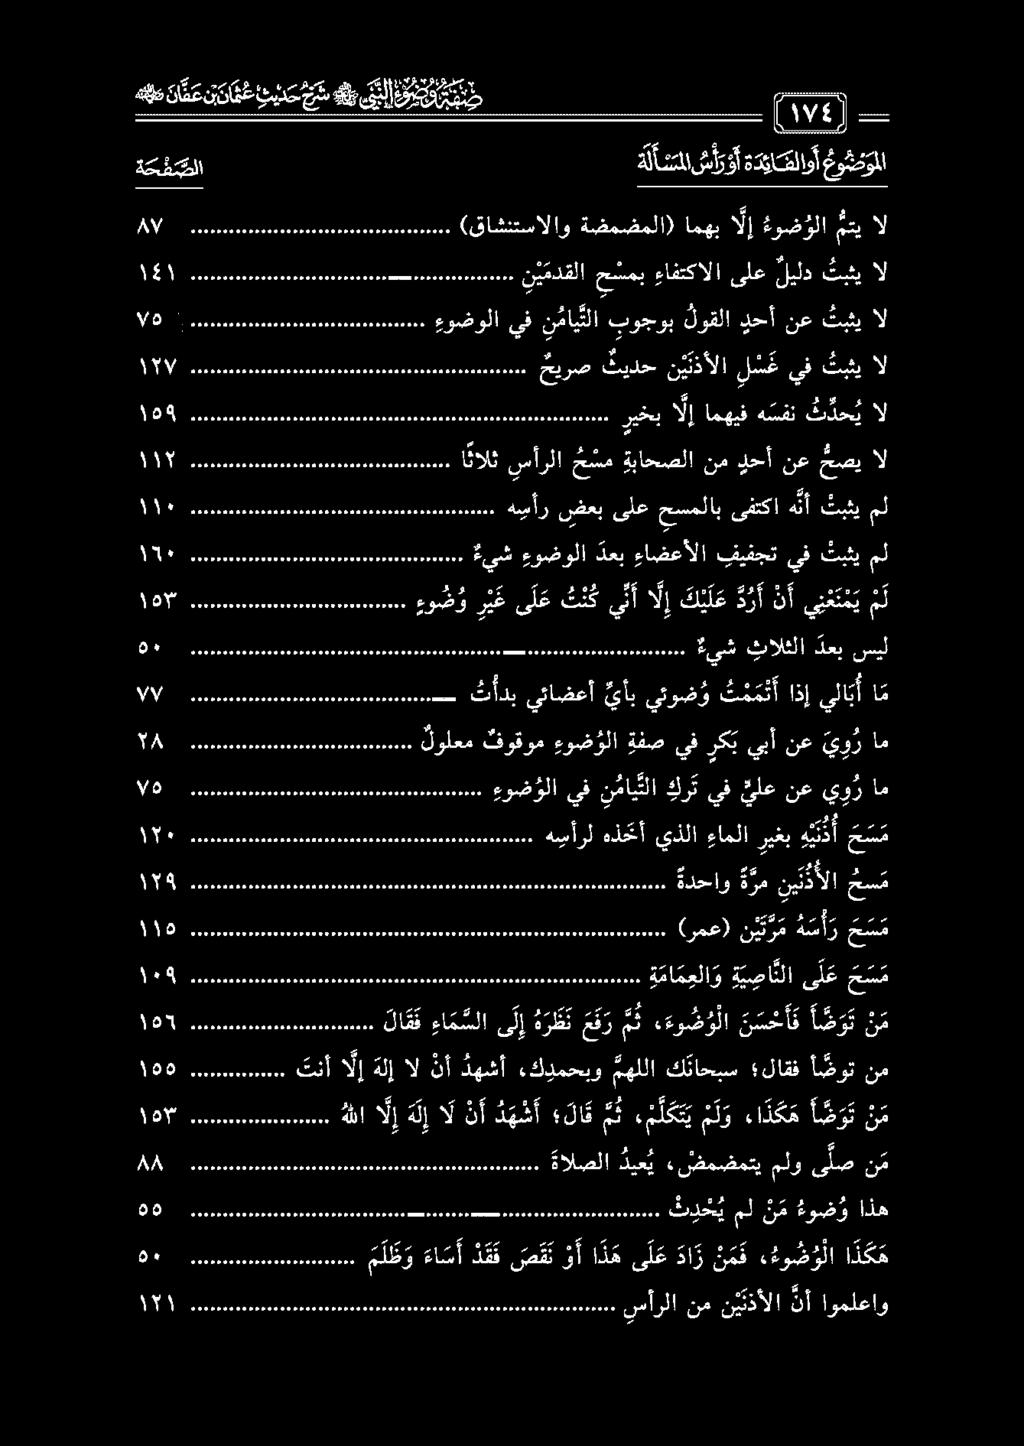 صِفَةُ وُضُوْءِ النَّبِيِّ ﷺ شَرْحُ حَدِيْثِ عُثْمَانَ بْنِ عَفَّانَ ﵁
١٧٤
المَوْضُوعُ أَو الفَائِدَة أَوْ رَأْسُ المَسْأَلَة الصَّفْحَة
لا يتمُّ الوُضوءُ إلَّا بهما (المضمضة والاستنشاق) ٨٧
لا يثبتُ دليلٌ على الاكتفاءِ بمسْحِ القدمَيْنِ ١٤١
لا يثبتُ عن أحدٍ القولُ بوجوبِ التَّيامُنِ في الوضوءِ ٧٥
لا يثبتُ في غَسْلِ الأذنَيْنِ حديثٌ صريحٌ ١٢٧
لا يُحدِّثُ نفسَه فيهما إلَّا بخيرٍ ١٥٩
لا يصحُّ عن أحدٍ من الصحابةِ مسْحُ الرأسِ ثلاثًا ١١٢
لم يثبتْ أنَّه اكتفى بالمسحِ على بعضِ رأسِه ١١٠
لم يثبتْ في تجفيفِ الأعضاءِ بعدَ الوضوءِ شيءٌ ١٦٠
لَمْ يَمْنَعْنِي أَنْ أَرُدَّ عَلَيْكَ إِلَّا أَنِّي كُنْتُ عَلَى غَيْرِ وُضُوءٍ ١٥٣
ليس بعدَ الثلاثِ شيءٌ ٥٠
مَا أُبَالي إذا أَتْمَمْتُ وُضوئي بأيِّ أعضائي بدأْتُ ٧٧
ما رُوِيَ عن أبي بَكرٍ في صفةِ الوُضوءِ موقوفٌ معلولٌ ٢٨
ما رُوِي عن عليٍّ في تَركِ التَّيامُنِ في الوُضوءِ ٧٥
مَسَحَ أُذُنَيْهِ بغيرِ الماءِ الذي أخَذه لرأسِه ١٢٠
مَسحُ الأُذُنَينِ مرَّةً واحدةً ١٢٩
مَسَحَ رَأْسَهُ مَرَّتَيْنِ (عمر) ١١٥
مَسَحَ عَلَى النَّاصِيَةِ وَالعِمَامَةِ ١٠٩
مَنْ تَوَضَّأَ فَأَحْسَنَ الْوُضُوءَ، ثُمَّ رَفَعَ نَظَرَهُ إِلَى السَّمَاءِ فَقَالَ ١٥٦
من توضَّأ فقال؛ سبحانَك اللهمَّ وبحمدِك، أشهدُ أنْ لا إلهَ إلَّا أنتَ ١٥٥
مَنْ تَوَضَّأَ هَكَذَا، وَلَمْ يَتَكَلَّمْ، ثُمَّ قَالَ؛ أَشْهَدُ أَنْ لَا إِلَهَ إِلَّا اللهُ ١٥٣
مَن صلَّى ولم يتمضمضْ، يُعيدُ الصلاةَ ٨٨
هذا وُضوءُ مَنْ لم يُحْدِثْ ٥٥
هَكَذَا الْوُضُوءُ، فَمَنْ زَادَ عَلَى هَذَا أَوْ نَقَصَ فَقَدْ أَسَاءَ وَظَلَمَ ٥٠
واعلموا أنَّ الأذنَيْن من الرأسِ ١٢١